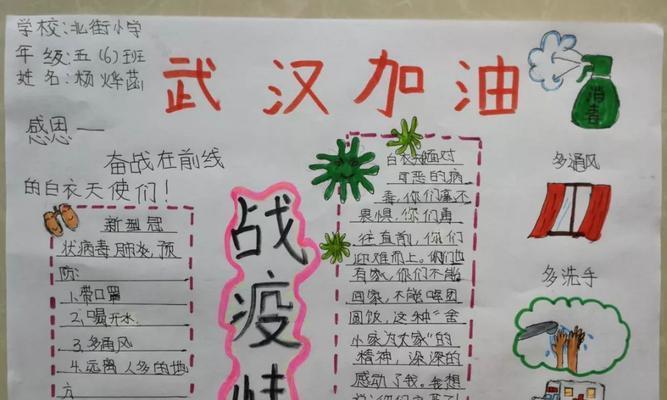 学校:北街小学
年级:五(6)班
姓名:杨烨菡
武汉加油
感恩—
奋战在前线
的白衣天使们！
新型冠
状病毒肺炎,预
防:
1.带口罩
2.喝开水
3.多通风
4.远离人多的地
方
战疫情
白衣天使面对
可恶的病
毒,你们毫不
畏惧,你们勇
往直前,你们
迎难而上。你们也
有家,你们不能
回家,不能喝团
圆饭,这种“舍
小家为大家”的
精神,深深的
感动了我。我想
说:你们辛苦了!
消毒
多通风
多洗手